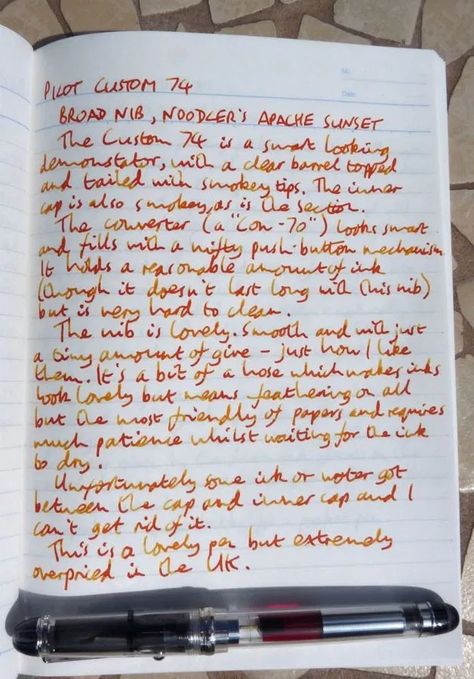 No.
Date
PILOT CUSTOM 74
BROAD NIB, NOODLER'S APACHE SUNSET
The Custom 74 is a smart looking
demonstator, with a clear barrel topped
and tailed with smokey tips. The inner
cap is also smokey, as is the section.
The converter (a "Con-70") looks smart
and fills with a nifty push-button mechanism.
It holds a reasonable amount of ink
(though it doesn't last long with this nib)
but is very hard to clean.
The nib is lovely. Smooth and with just
a tiny amount of give - just how I like
them. It's a bit of a hose which makes inks
look lovely but means feathering on all
but the most friendly of papers and requires
much patience whilst waiting for the ink
to dry.
Unfortunately some ink or water got
between the cap and inner cap and I
can't get rid of it.
This is a lovely pen but extremely
overpried in the UK.